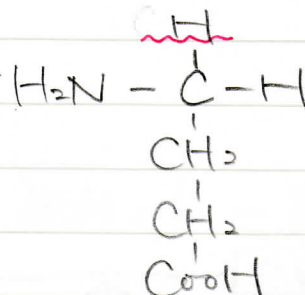 H
H₂N - C - H
CH₂
CH₂
COOH